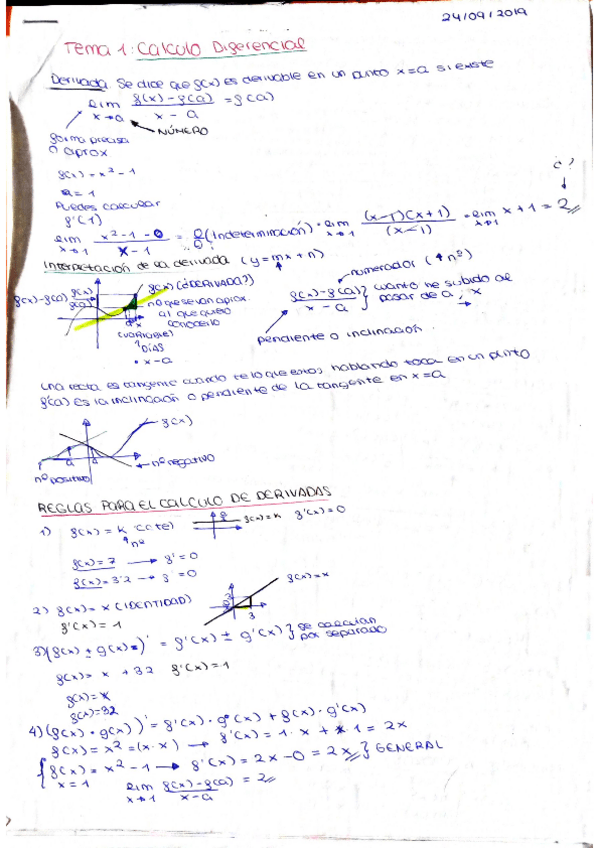 24/09/2019
Tema 1: Calculo Diferencial
Derivada. Se dice que f(x) es derivable en un punto x=a si existe
lim f(x)-f(a) / x-a = f(a)
x→a
NÚMERO
forma precisa
o aprox
f(x) = x²-1
a = 1
Puedes calcular
f'(1)
c?
lim x→1 x²-1-0 / x-1 = 0/0 (Indeterminación) = lim x→1 (x-1)(x+1) / (x-1) = lim x→1 x+1 = 2
Interpretación de la derivada (y=mx+n)
numerador (↑ nº)
f(x) (¿DERIVADA?)
f(x)-f(a)
f(x)
f(a)
nº que se van aprox.
al que quiero
conocerlo
(VARIABLE)
DÍAS
• x-a
f(x)-f(a) / x-a } cuanto he subido al
pasar de a → x
pendiente o inclinación
Una recta es tangente cuando te lo que estoy hablando toca en un punto
f'(a) es la inclinación o pendiente de la tangente en x=a
f(x)
a
nº negativo
nº positivo
REGLAS PARA EL CALCULO DE DERIVADAS
1) f(x) = K (cte)
nº
f(x)=K f'(x)=0
f(x)=7 → f'=0
f(x)=3'2 → f'=0
2) f(x) = x (IDENTIDAD)
f'(x) = 1
f(x)=x
3
3
3) (f(x) ± g(x))' = f'(x) ± g'(x) } se calculan
por separado
f(x) = x + 32 f'(x)=1
f(x)=x
f(x)=32
4) (f(x) · g(x))' = f'(x) · g(x) + f(x) · g'(x)
f(x) = x² = (x·x) → f'(x) = 1·x + x·1 = 2x
{ f(x) = x²-1 → f'(x) = 2x-0 = 2x } GENERAL
x=1 lim x→1 f(x)-f(a) / x-a = 2